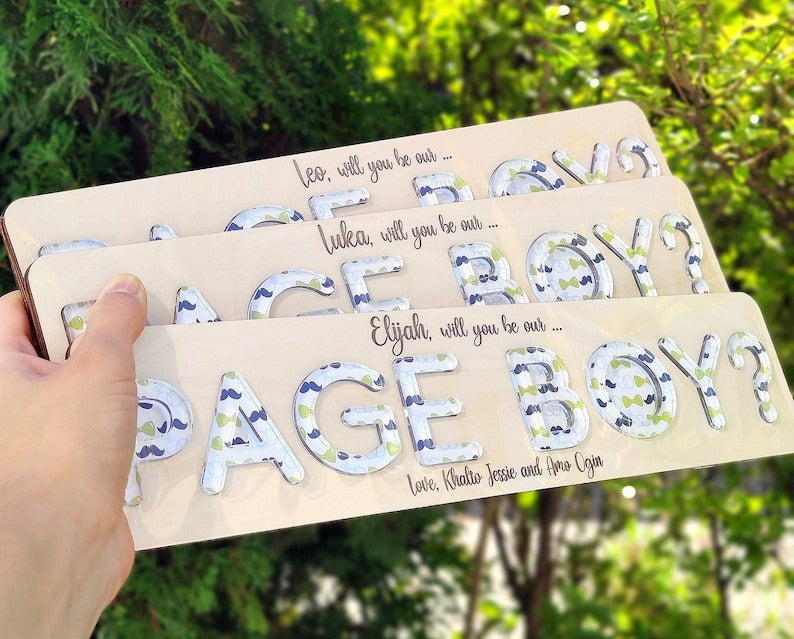 Leo, will you be our ...
PAGE BOY?
Luka, will you be our ...
PAGE BOY?
Elijah, will you be our ...
PAGE BOY?
Love, Khalto Jessie and Amo Ogin